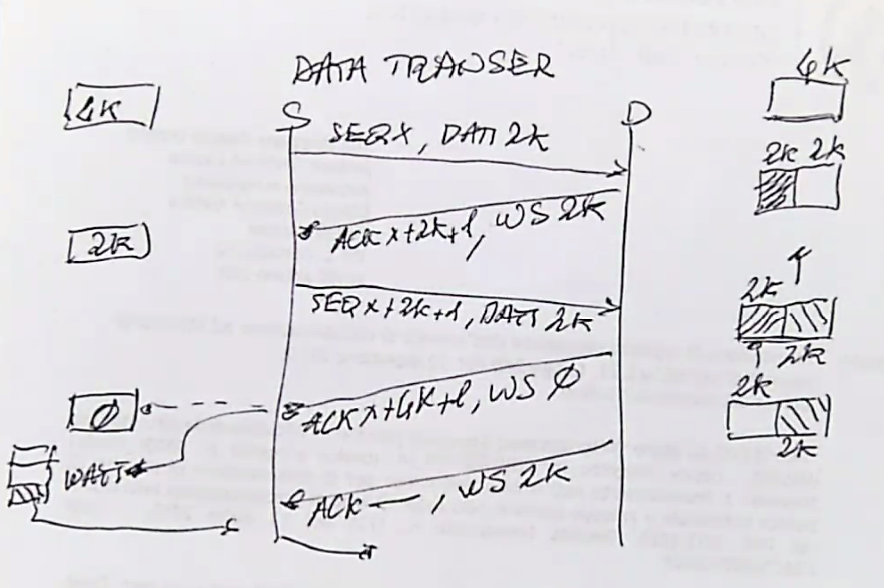 DATA TRANSER
4K
4K
S
D
SEQ X, DATI 2K
2K 2K
ACK X+2K+1, WS 2K
2K
2K
SEQ X+2K+1, DATI 2K
2K
2K
ACK X+4K+1, WS Ø
Ø
2K
WAIT
ACK —, WS 2K